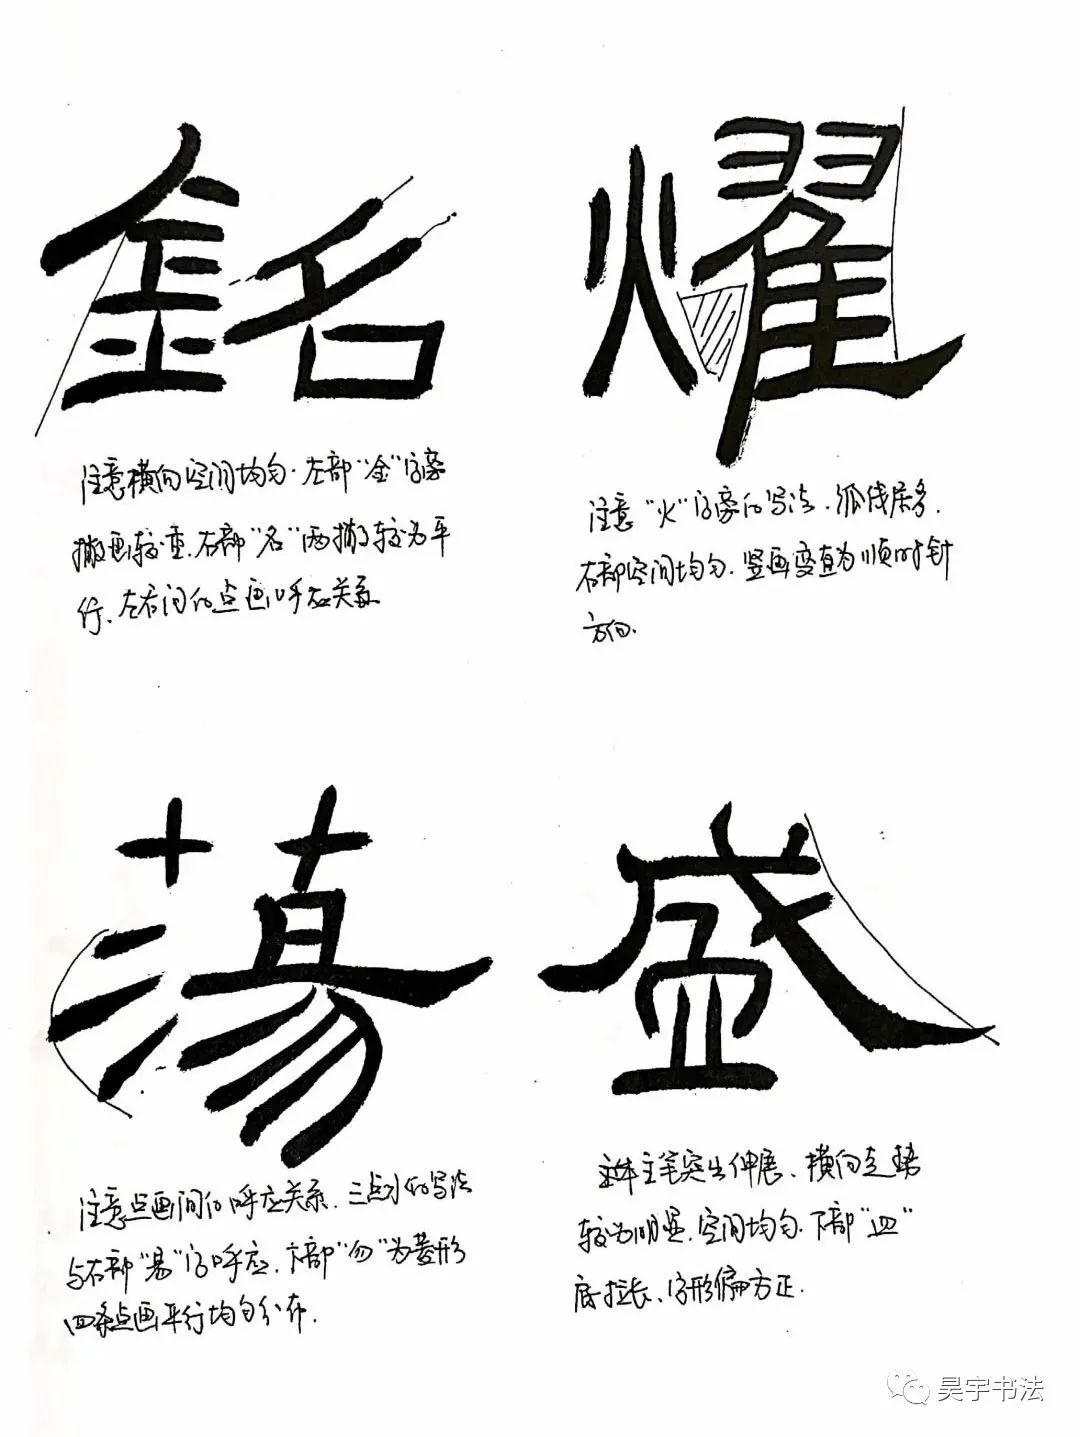 銘
注意横向空间均匀.左部“金”字旁
撇画较重.右部“名”两撇较为平
行、左右间的点画呼应关系.
耀
注意“火”字旁的写法.弧线居多.
右部空间均匀.竖画变直为顺时针
方向.
蕩
注意点画间的呼应关系.三点水的写法
与右部“昜”字呼应.下部“勿”为菱形
四条点画平行均匀分布.
盛
主笔突出伸展、横向走势
较为明显.空间均匀.下部“皿”
底拉长、字形偏方正.
昊宇书法